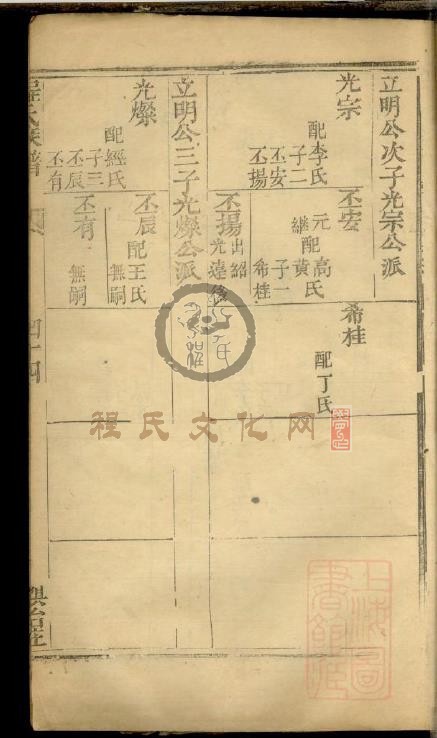 立明公次子光宗公派
光宗
配李氏
子二
丕安
丕揚
丕安
元配高氏
繼 黄氏
子一
希桂
希桂
配丁氏
丕揚
出紹
光達
立明公三子光燦公派
光燦
配經氏
子三
丕辰
丕有
丕辰
配王氏
無嗣
丕有
無嗣
程氏族譜
四十四
程氏文化网
上海圖
書館藏